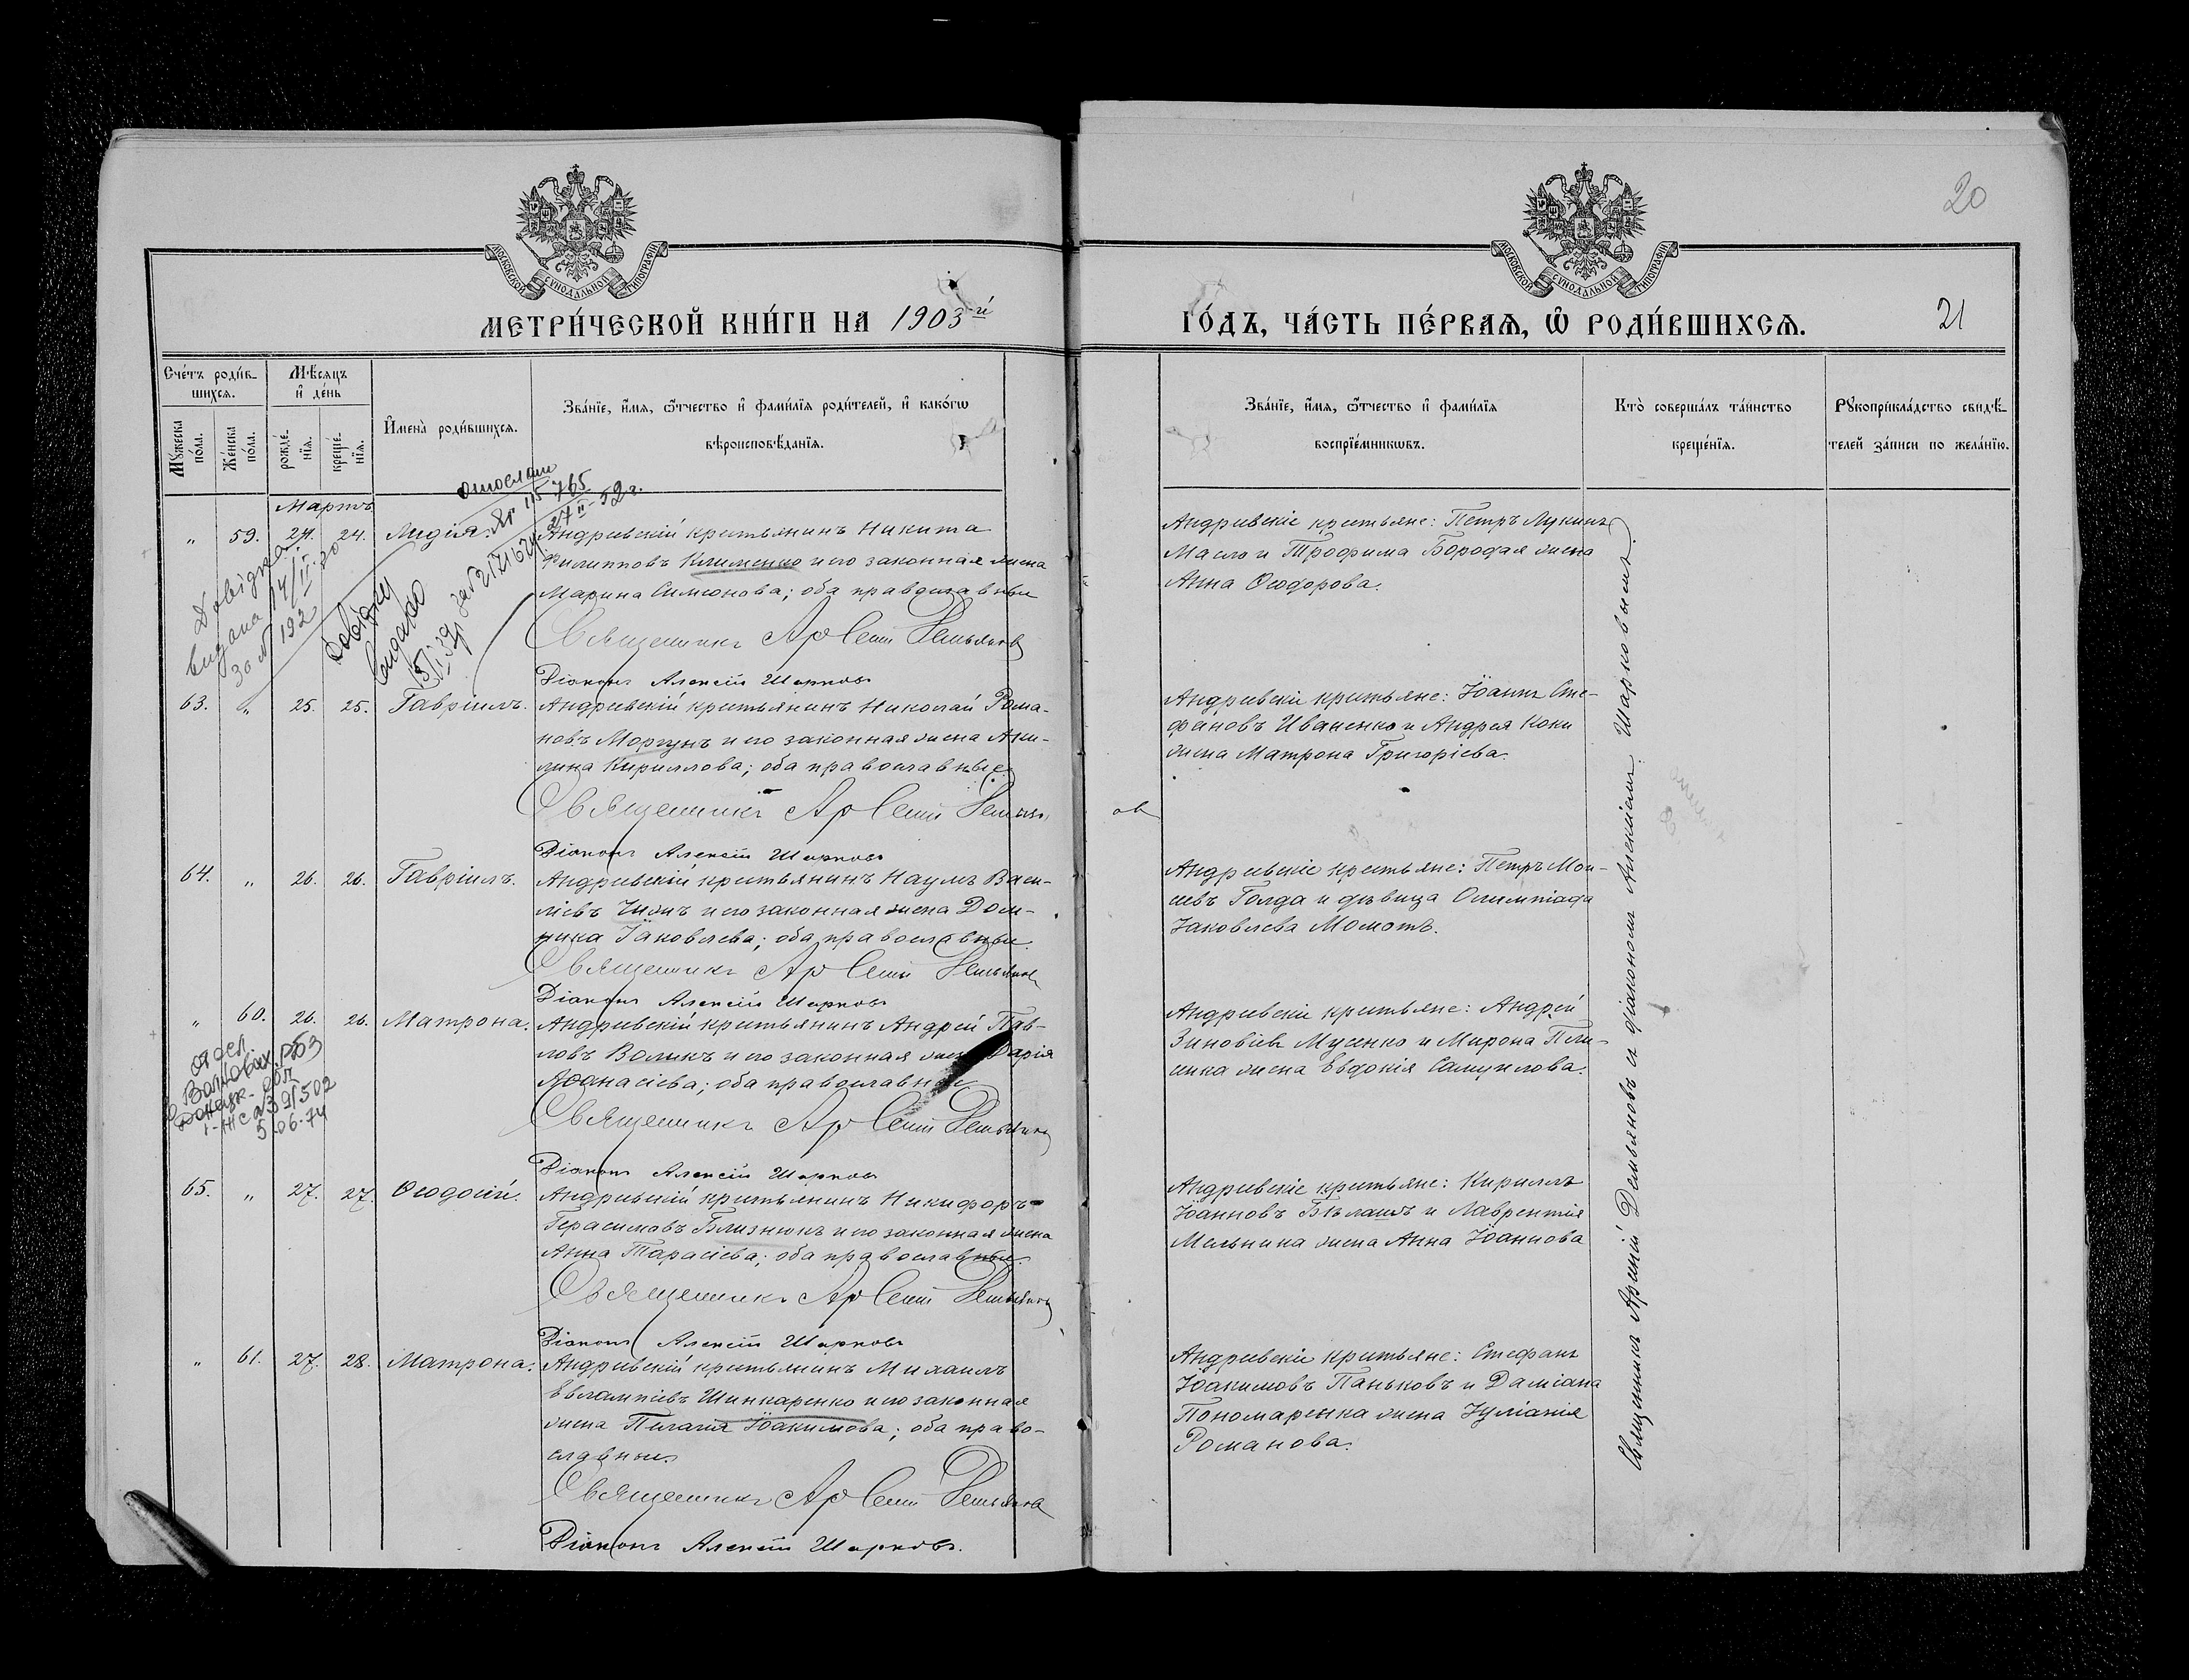 20
МОСКОВСКОЙ СѴНОДАЛЬНОЙ ТИПОГРАФІИ
МОСКОВСКОЙ СѴНОДАЛЬНОЙ ТИПОГРАФІИ
МЕТРИ́ЧЕСКОЙ КНИ́ГИ НА 1903й
ГО́ДЪ, ЧА́СТЬ ПЕ́РВАѦ, Ѽ РОДИ́ВШИХСѦ.
21
Сче́тъ роди́в-
шихсѧ.
Мꙋ́жеска по́ла.
Же́нска по́ла.
Мѣ́сѧцъ
и҆ де́нь
рожде́-
нїѧ.
креще́-
нїѧ.
И҆мена̀ роди́вшихсѧ.
Зва́нїе, и҆́мѧ, ѻ҆́тчество и҆ фами́лїѧ роди́телей, и҆ како́гѡ
вѣроисповѣ́данїѧ.
Зва́нїе, и҆́мѧ, ѻ҆́тчество и҆ фами́лїѧ
воспрїе́мникѡвъ.
Кто̀ соверша́лъ та́инство
креще́нїѧ.
Рꙋкоприкла́дство свидѣ́-
телей за́писи по жела́нїю.
Мартъ
„ 59. 24. 24. Лидія.
Андреевскій крестьянинъ Никита
Филипповъ Клименко и его законная жена
Марина Симеонова; оба православные
Священникъ Арсеній Демьяновъ
Діаконъ Алексій Шарковъ
Андреевскіе крестьяне: Петръ Лукинъ
Масло и Трофима Бородая жена
Анна Ѳеодорова.
видана
за № 192
видано
63. „ 25. 25. Гавріилъ.
Андреевскій крестьянинъ Николай Рома-
новъ Моргунъ и его законная жена Аки-
лина Кириллова; оба православные.
Священникъ Арсеній Демьяновъ
Діаконъ Алексій Шарковъ
Андреевскіе крестьяне: Іоаннъ Сте-
фановъ Иваненко и Андрея Коки
жена Матрона Григоріева.
64. „ 26. 26. Гавріилъ.
Андреевскій крестьянинъ Наумъ Васи-
ліевъ Чижъ и его законная жена Дом-
ника Іаковлева; оба православные.
Священникъ Арсеній Демьяновъ
Діаконъ Алексій Шарковъ
Андреевскіе крестьяне: Петръ Мои-
сеевъ Голда и дѣвица Олимпіада
Іаковлева Момотъ.
„ 60. 26. 26. Матрона.
Андреевскій крестьянинъ Андрей Пав-
ловъ Воликъ и его законная жена Дарія
Аѳанасіева; оба православные
Священникъ Арсеній Демьяновъ
Діаконъ Алексій Шарковъ
Андреевскіе крестьяне: Андрей
Зиновіевъ Мусенко и Мирона
жена Евдокія Самуилова.
5.06.74
65. „ 27. 27. Ѳеодосій.
Андреевскій крестьянинъ Никифоръ
Герасимовъ Близнюкъ и его законная жена
Анна Тарасіева; оба православные.
Священникъ Арсеній Демьяновъ
Діаконъ Алексій Шарковъ
Андреевскіе крестьяне: Кириллъ
Іоанновъ Бѣлашъ и Лаврентія
Мельника жена Анна Іоаннова
„ 61. 27. 28. Матрона.
Андреевскій крестьянинъ Михаилъ
Евлампіевъ Шинкаренко и его законная
жена Пелагія Іоакимова; оба право-
славные.
Священникъ Арсеній Демьянова
Діаконъ Алексій Шарковъ.
Андреевскіе крестьяне: Стефанъ
Іоакимовъ Паньковъ и Даміана
Пономаренка жена Іуліанія
Романова.
Священникъ Арсеній Демьяновъ съ діакономъ Алексіемъ Шарковымъ.